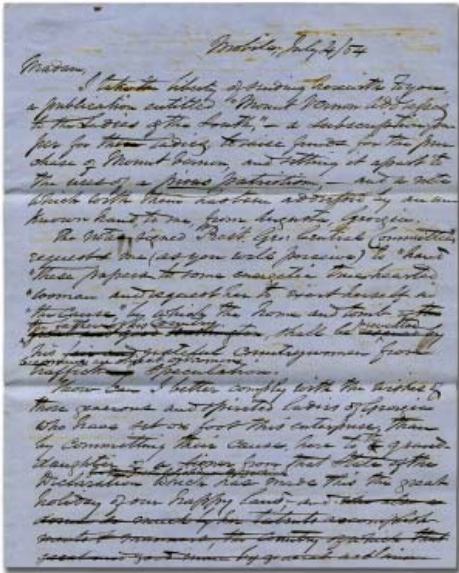 Mobile, July 4/54
Madam,
I take the liberty of sending herewith to you
a publication entitled "Mount Vernon addressed
to the Ladies of the South," - a subscription pa
per for those ladies to raise funds for the pur
chase of Mount Vernon, and setting it apart to
the uses of a pious patriotism, - and a note
which with them has been addressed by an un
known hand to me, from Augusta, Georgia.
The note signed Geo. Central Committee,
requests me (as you will perceive) to "hand
"these papers to some energetic true hearted
"woman and request her to exert herself in
"the cause," by which the home and tomb of the
shall be by
his grateful countrywomen from
traffic & speculation.
How can I better comply with the wishes of
those generous and spirited ladies of Georgia
who have set on foot this enterprise, than
by committing their cause here to the grand
daughter of a signer from that State of the
Declaration which has made this the great
holiday of our happy land, and
so much of her talents accomplish
ments & manners, the country